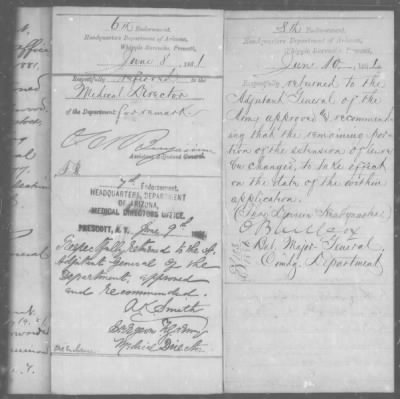 6th Endorsement.
Headquarters Department of Arizona,
Whipple Barracks, Prescott,
June 8, 1881.
Respectfully referred to the
Medical Director
of the Department for remark
Assistant Adjutant General
7th Endorsement,
HEADQUARTERS, DEPARTMENT
OF ARIZONA,
MEDICAL DIRECTORS OFFICE,
PRESCOTT, A. T. June 9th
Respectfully returned to the
Adjutant General of the
Department, approved
and recommended.
A. K. Smith
Surgeon U.S. Army
Medical Director
8th Endorsement.
Headquarters Department of Arizona,
Whipple Barracks, Prescott,
June 10, 1881.
Respectfully returned to the
Adjutant General of the
Army approved & recommend-
ing that the remaining por-
tion of the extension of leave
be changed, to take effect
on the date of the within
application.
O B Willcox
Bvt. Major General,
Comdg Department